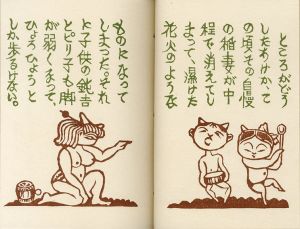 ところがどう
したわけか、こ
の頃その自慢
の稲妻が中
程で消えてし
まって、濕けた
花火のような
ものになって
しまった。それ
に子供の鈍吉
とピリ子も脚
が弱くなって、
ひょろひょろと
しか歩るけない。